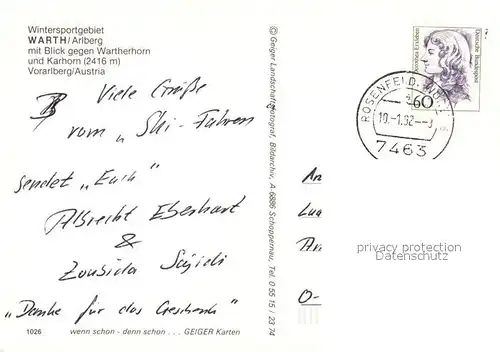 Wintersportgebiet
WARTH/Arlberg
mit Blick gegen Wartherhorn
und Karhorn (2416 m)
Vorarlberg/Austria
Viele Grüße
vom „Ski-Fahren
sendet „Euch"
Albrecht Eberhart
&
„Danke für das Geschenk"
1026 wenn schon - denn schon . . . GEIGER Karten
© Geiger Landschaftsfotograf, Bildarchiv, A-6886 Schoppernau, Tel. 0 55 15 / 23 74
Dorothea Erxleben
Deutsche Bundespost
60
ROSENFELD
10.-1.92.--
7463
privacy protection
Datenschutz
O-